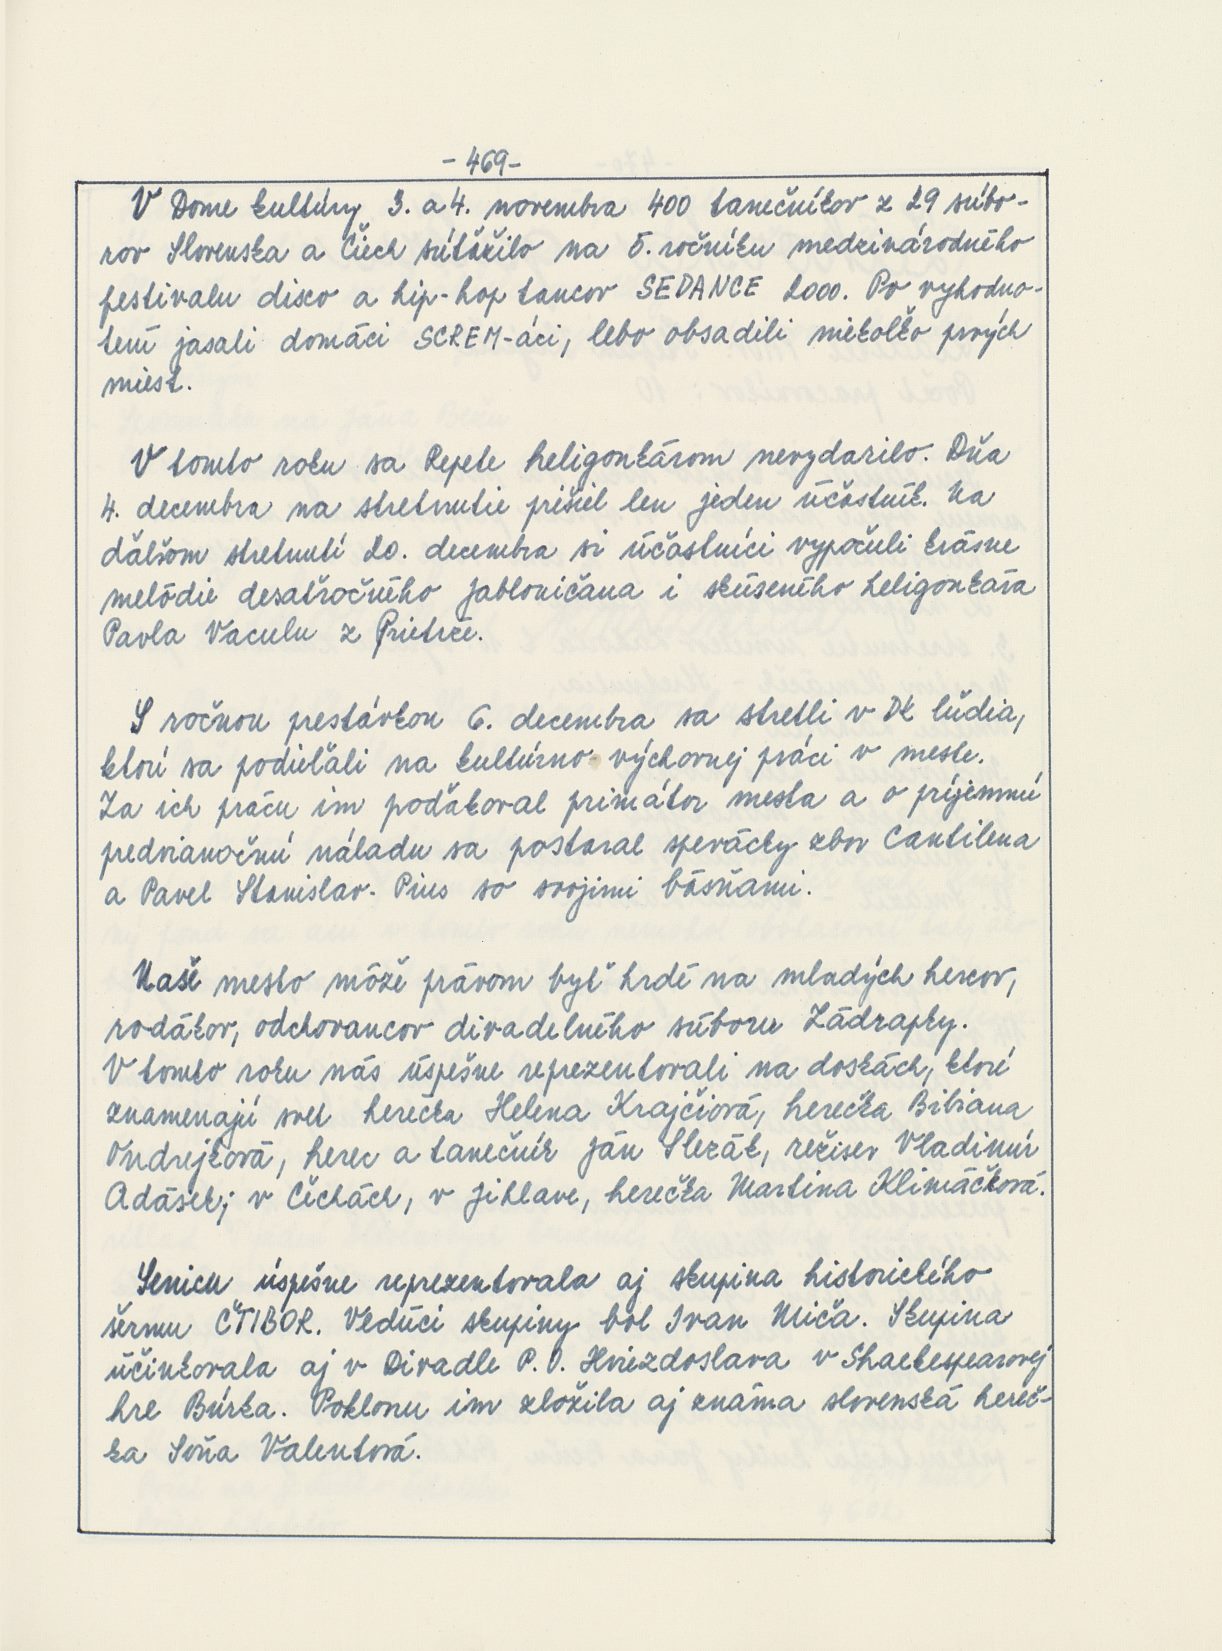 -469-
V Dome kultúry 3. a 4. novembra 400 tanečníkov z 29 súbo-
rov Slovenska a Čiech súťažilo na 5. ročníku medzinárodného
festivalu disco a hip-hop tancov SEDANCE 2000. Po vyhodno-
tení jasali domáci SCREM-áci, lebo obsadili niekoľko prvých
miest.
V tomto roku sa Repete heligonkárom nevydarilo. Dňa
4. decembra na stretnutie prišiel len jeden účastník. Na
ďalšom stretnutí 20. decembra si účastníci vypočuli krásne
melódie desaťročného Jabloničana i skúseného heligonkára
Pavla Vaculu z Prietrže.
S ročnou prestávkou 6. decembra sa stretli v DK ľudia,
ktorí sa podieľali na kultúrno-výchovnej práci v meste.
Za ich prácu im poďakoval primátor mesta a o príjemnú
predvianočnú náladu sa postaral spevácky zbor Cantilena
a Pavel Stanislav-Pius so svojimi básňami.
Naše mesto môže právom byť hrdé na mladých hercov,
rodákov, odchovancov divadelného súboru Zádrapky.
V tomto roku nás úspešne reprezentovali na doskách, ktoré
znamenajú svet herečka Helena Krajčiová, herečka Bibiana
Ondrejková, herec a tanečník Ján Slezák, režisér Vladimír
Adásek; v Čechách, v Jihlave, herečka Martina Klimáčková.
Senicu úspešne reprezentovala aj skupina historického
šermu ČTIBOR. Vedúci skupiny bol Ivan Miča. Skupina
účinkovala aj v Divadle P. O. Hviezdoslava v Shaekespearovej
hre Búrka. Poklonu im zložila aj známa slovenská hereč-
ka Soňa Valentová.